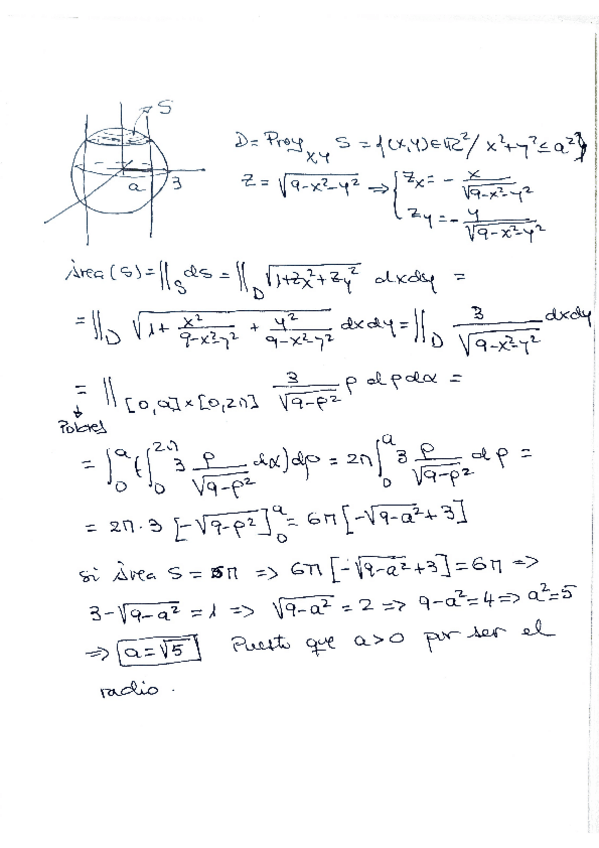 S
a 3
D = Proy_{X,Y} S = {(X,Y)∈ℝ²/ x²+y² ≤ a²}
Z = √(9-x²-y²) ⇒ { Zx = - x/√(9-x²-y²)
Zy = - y/√(9-x²-y²)
Área (S) = ∬_S ds = ∬_D √(1+Zx²+Zy²) dxdy =
= ∬_D √(1 + x²/(9-x²-y²) + y²/(9-x²-y²)) dxdy = ∬_D 3/√(9-x²-y²) dxdy
= ∬_{[0,a]×[0,2π]} 3/√(9-ρ²) ρ dρdα =
↓
Polares
= ∫₀^a (∫₀^{2π} 3 ρ/√(9-ρ²) dα) dρ = 2π ∫₀^a 3 ρ/√(9-ρ²) dρ =
= 2π·3 [-√(9-ρ²)]₀^a = 6π [-√(9-a²) + 3]
si Área S = π ⇒ 6π [-√(9-a²)+3] = 6π ⇒
3-√(9-a²) = 1 ⇒ √(9-a²) = 2 ⇒ 9-a² = 4 ⇒ a² = 5
⇒ a = √5 Puesto que a>0 por ser el
radio.